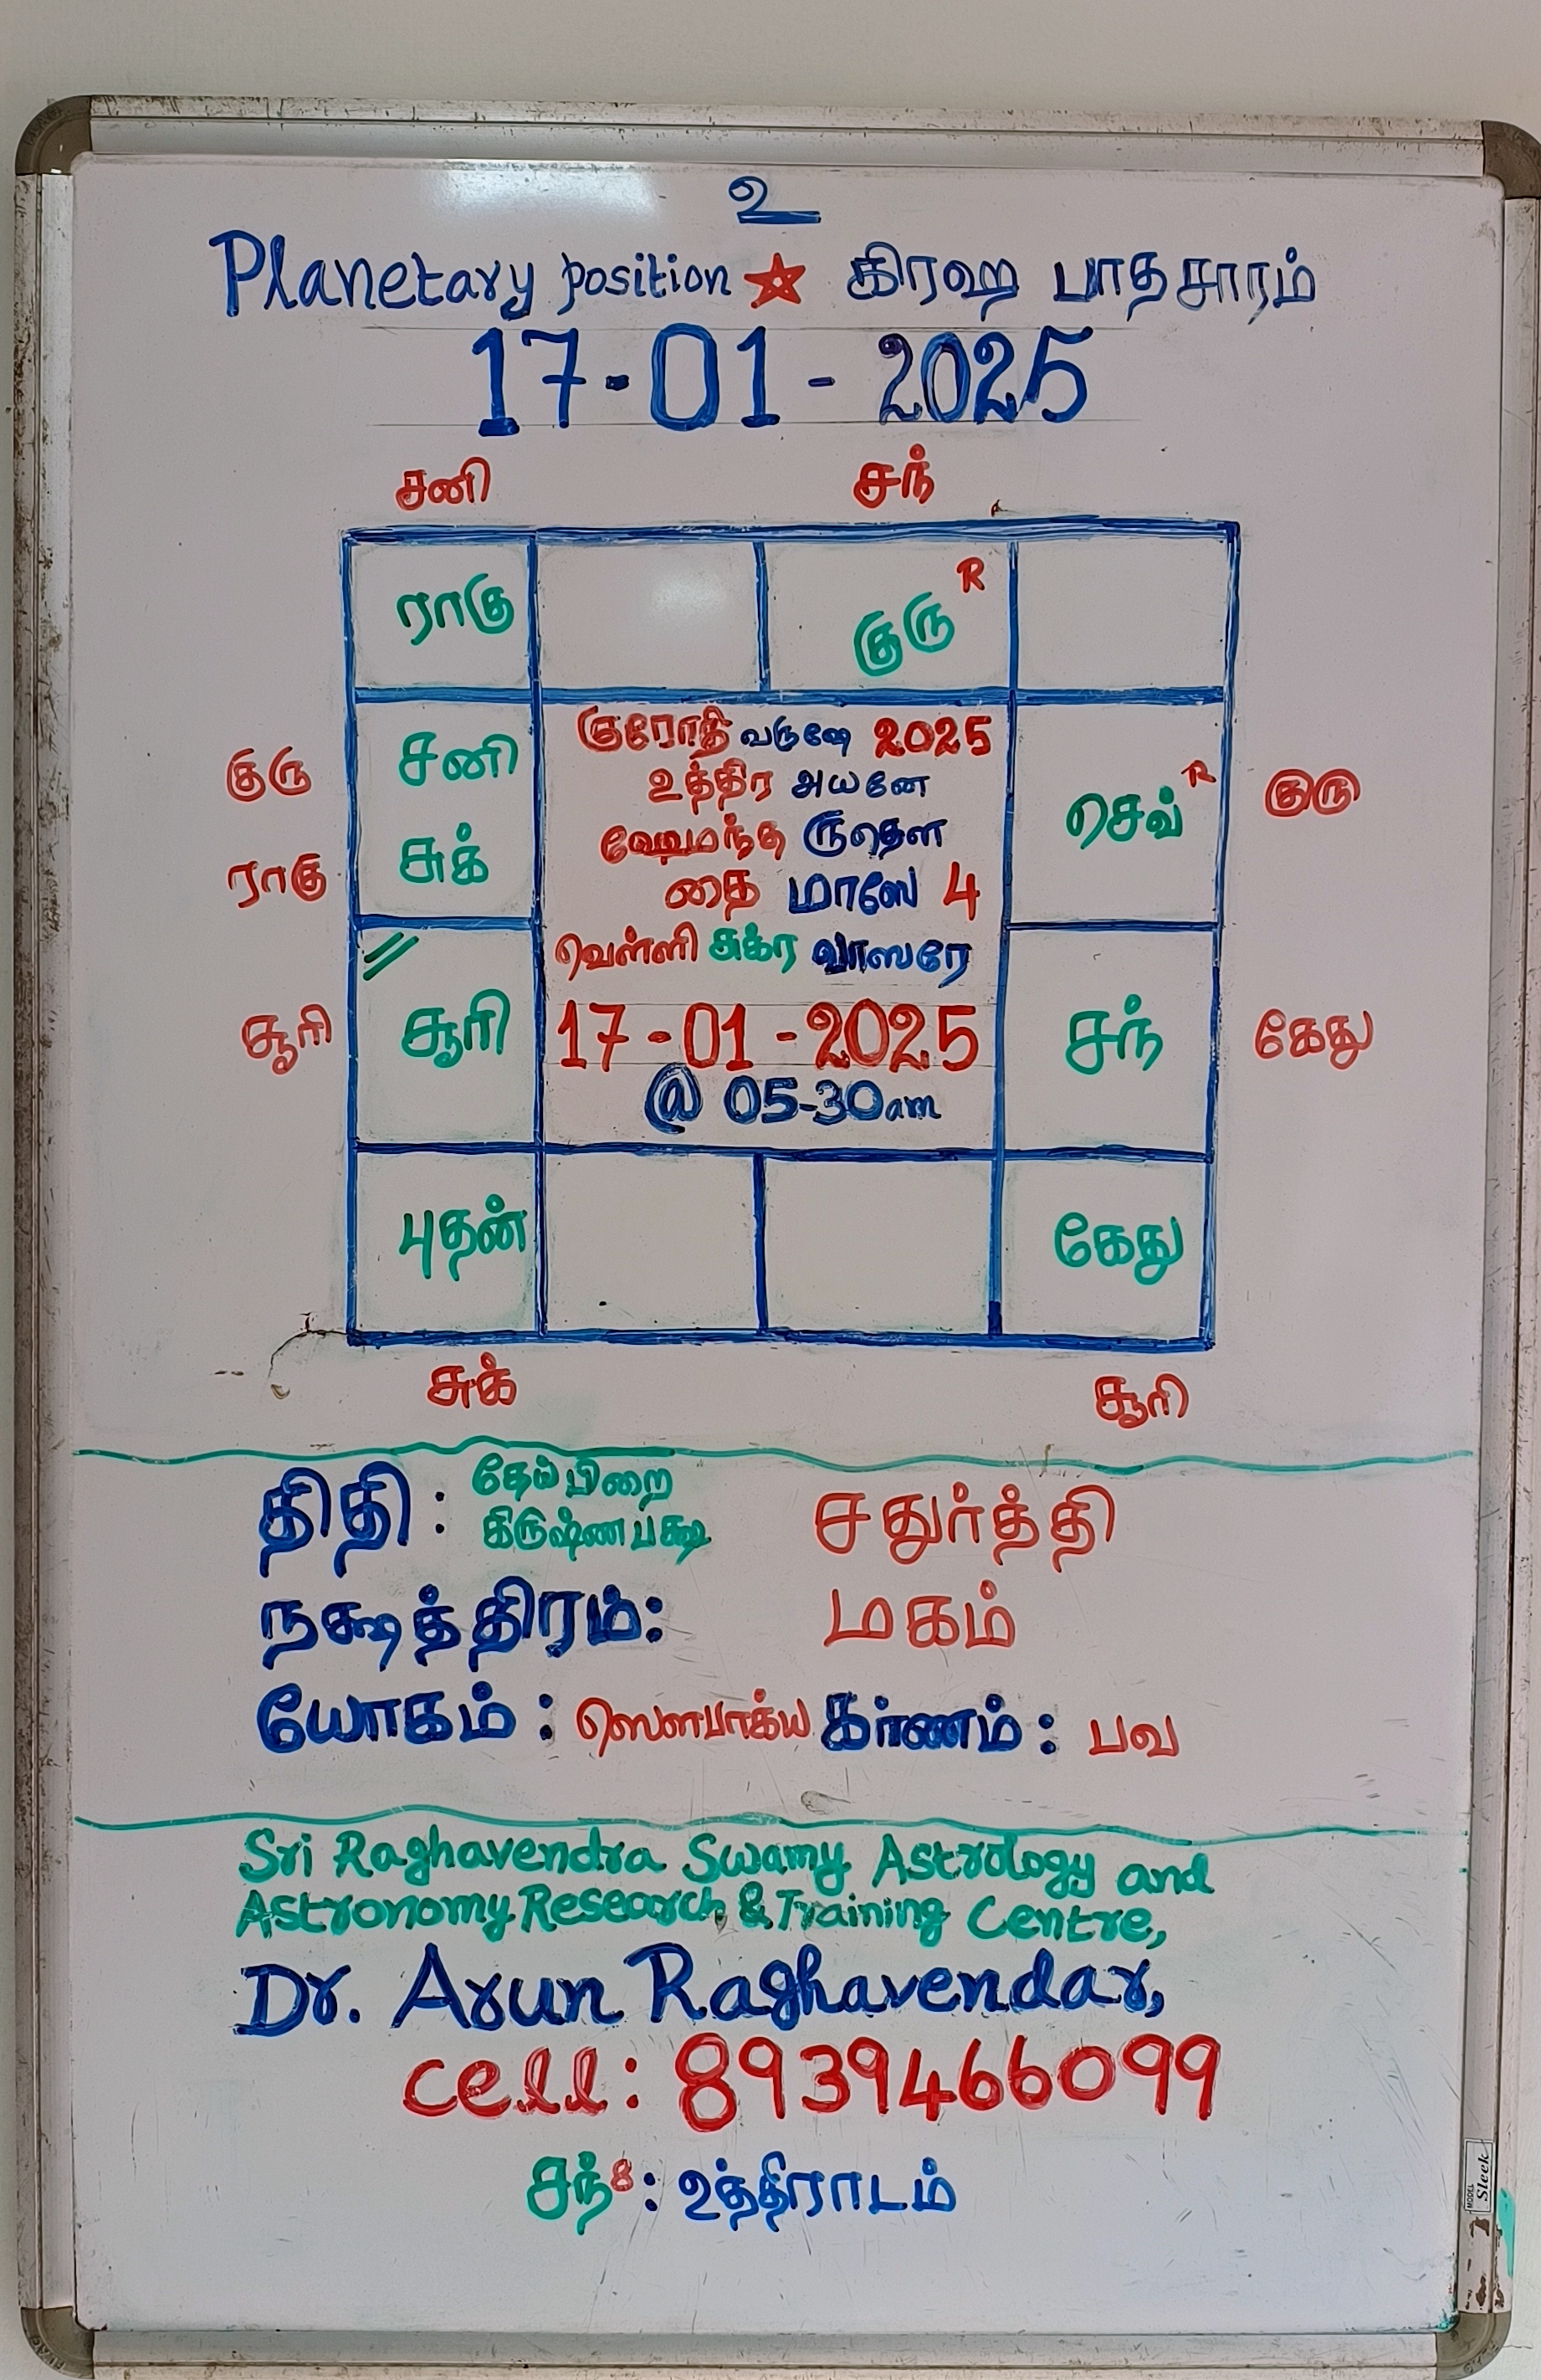 உ
Planetary position ★ கிரஹ பாதசாரம்
17-01-2025
சனி சந்
ராகு குரு R
குரு சனி குரோதி வருஷே 2025 செவ் R குரு
உத்திர அயனே
ராகு சுக் ஹேமந்த ருதௌ
தை மாஸே 4
வெள்ளி சுக்ர வாஸரே
சூரி சூரி 17-01-2025 சந் கேது
@ 05-30am
புதன் கேது
சுக் சூரி
திதி : தேய்பிறை சதுர்த்தி
கிருஷ்ணபக்ஷ
நக்ஷத்திரம்: மகம்
யோகம் : ஸௌபாக்ய கர்ணம் : பவ
Sri Raghavendra Swamy Astrology and
Astronomy Research & Training Centre,
Dr. Arun Raghavendar,
cell: 8939466099
சந் 8 : உத்திராடம்
MODEL Sleek